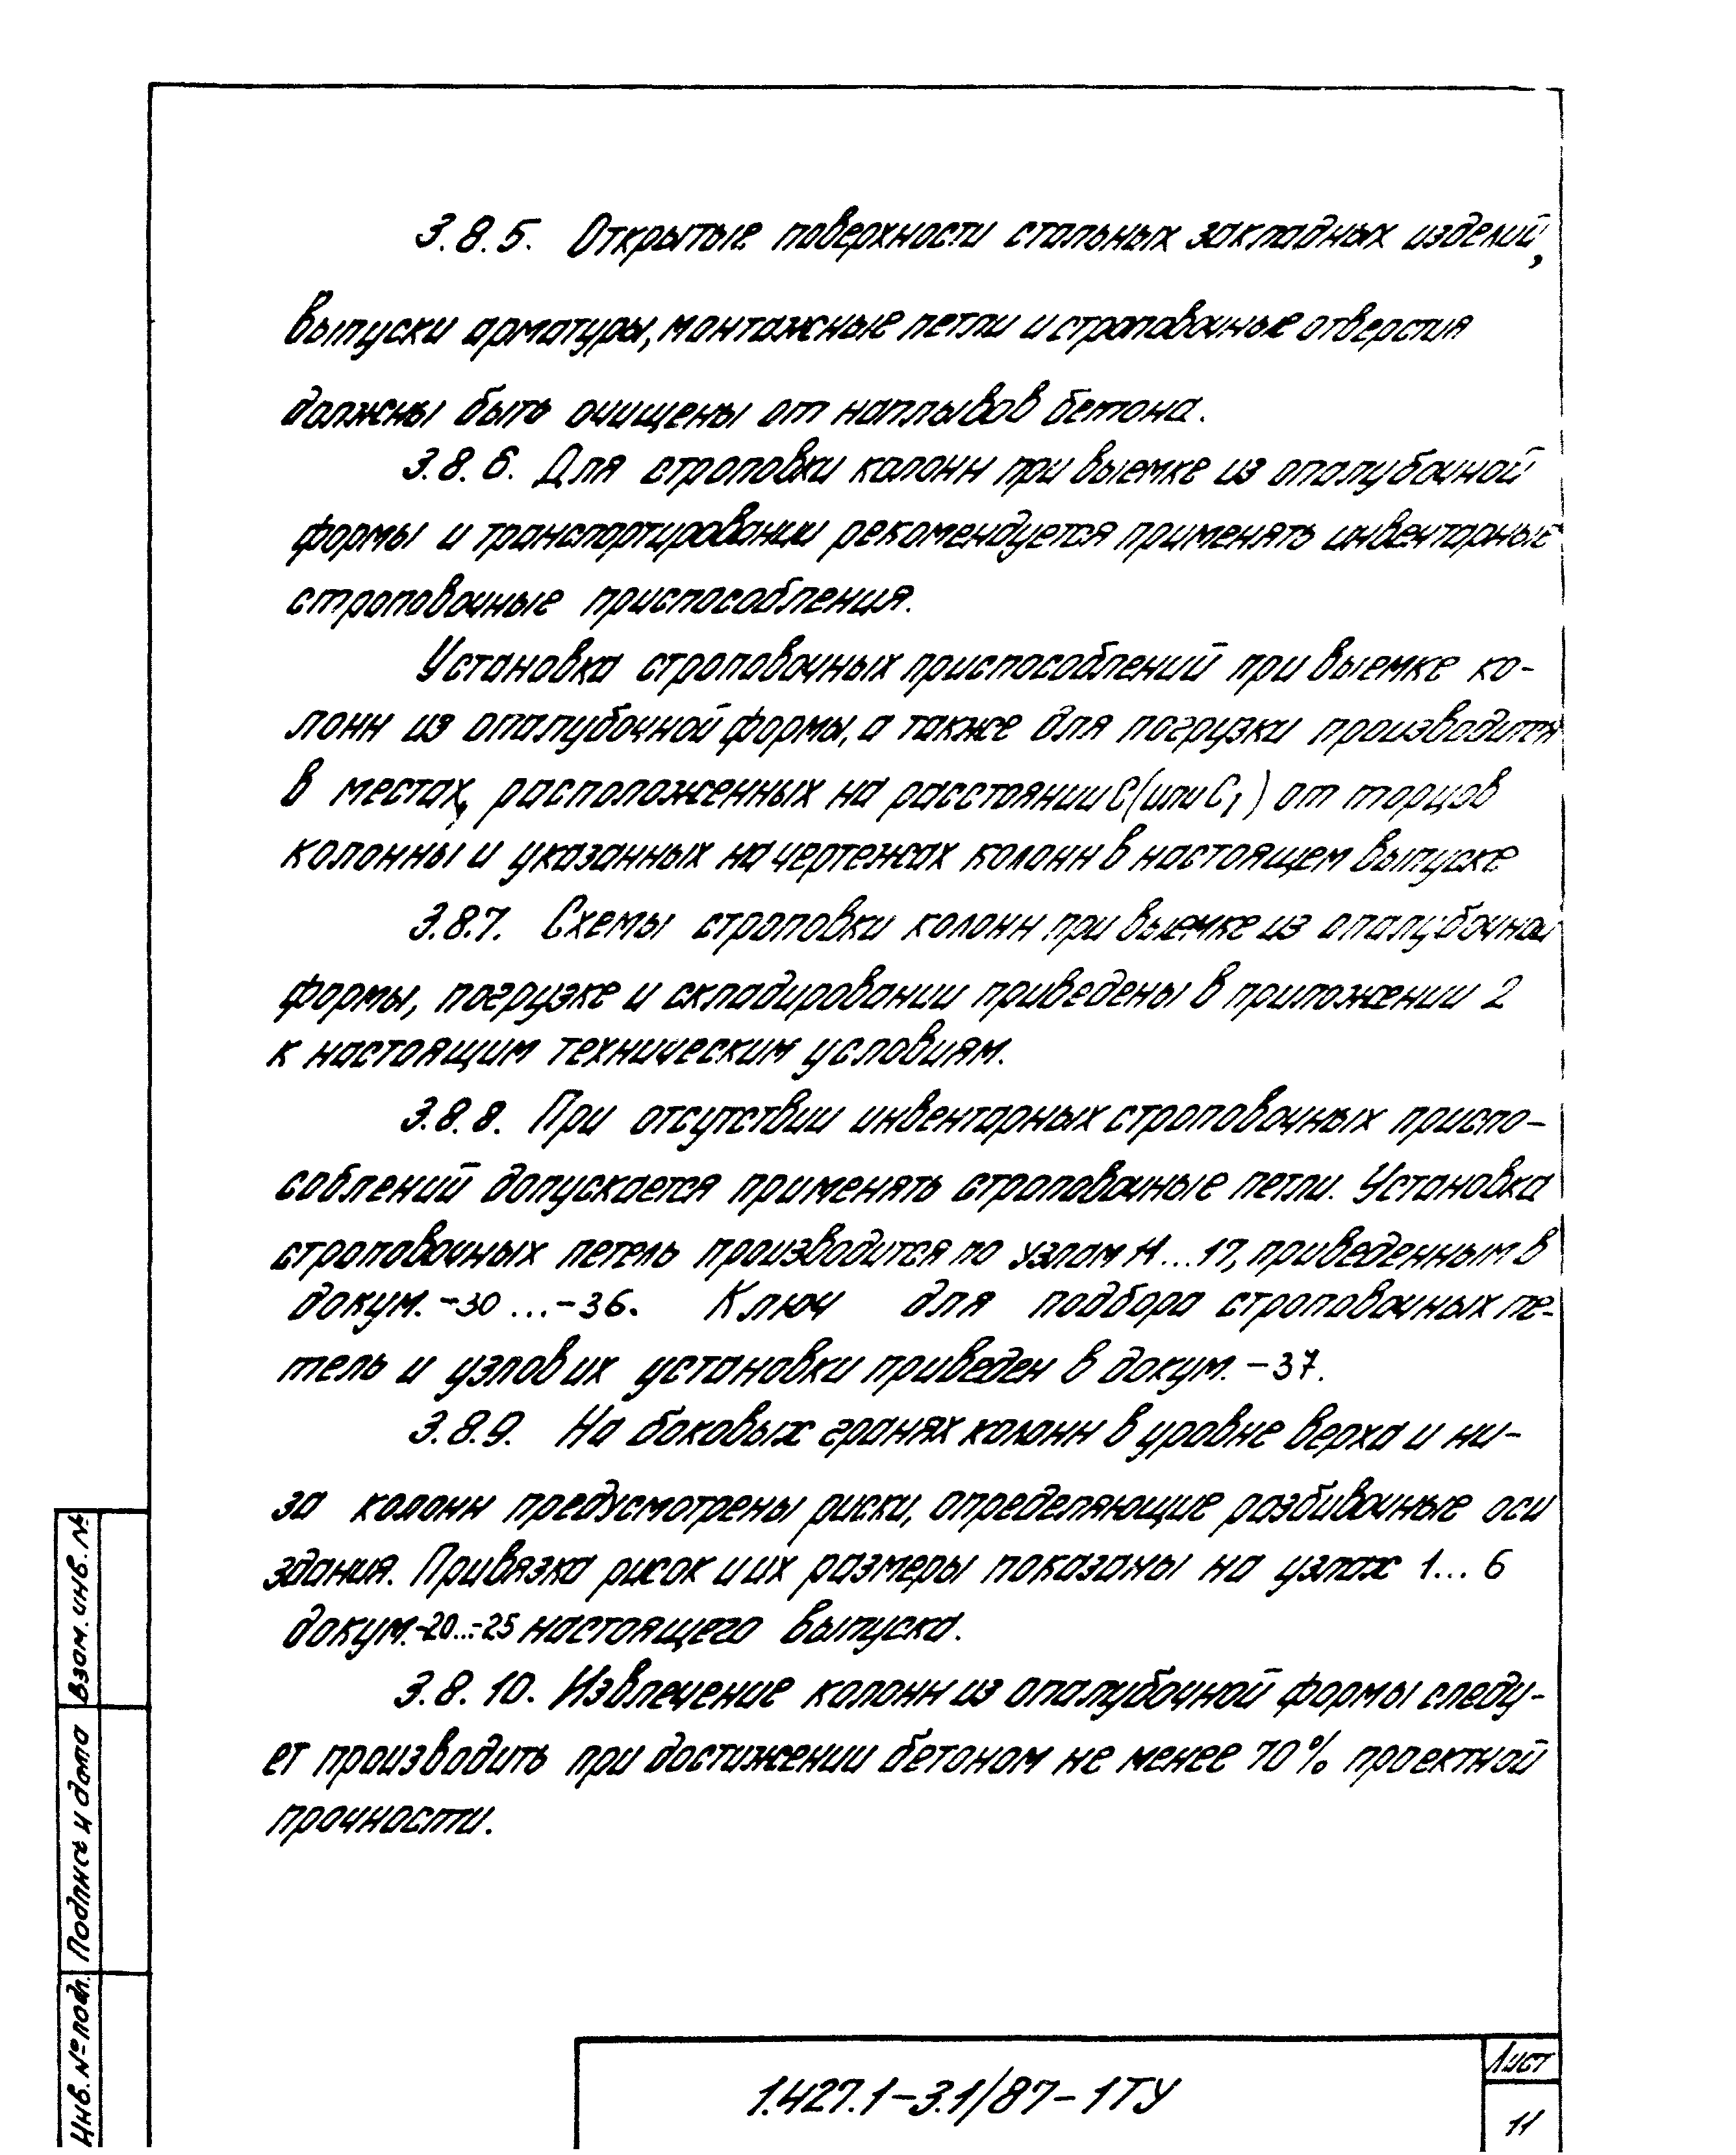 3.8.5. Открытые поверхности стальных закладных изделий,
выпуски арматуры, монтажные петли и строповочные отверстия
должны быть очищены от наплывов бетона.
3.8.6. Для строповки колонн при выемке из опалубочной
формы и транспортировании рекомендуется применять инвентарные
строповочные приспособления.
Установка строповочных приспособлений при выемке ко-
лонн из опалубочной формы, а также для погрузки производится
в местах, расположенных на расстоянии С (или С1) от торцов
колонны и указанных на чертежах колонн в настоящем выпуске
3.8.7. Схемы строповки колонн при выемке из опалубочной
формы, погрузке и складировании приведены в приложении 2
к настоящим техническим условиям.
3.8.8. При отсутствии инвентарных строповочных приспо-
соблений допускается применять строповочные петли. Установка
строповочных петель производится по узлам 11...17, приведенным в
докум. -30...-36. Ключ для подбора строповочных пе-
тель и узлов их установки приведен в докум. -37.
3.8.9. На боковых гранях колонн в уровне верха и ни-
за колонн предусмотрены риски, определяющие разбивочные оси
здания. Привязка рисок и их размеры показаны на узлах 1...6
докум.-20...-25 настоящего выпуска.
3.8.10. Извлечение колонн из опалубочной формы следу-
ет производить при достижении бетоном не менее 70% проектной
прочности.
Взам. инв. №
Подпись и дата
Инв. № подл.
1.427.1-3.1/87-1ТУ
Лист
11